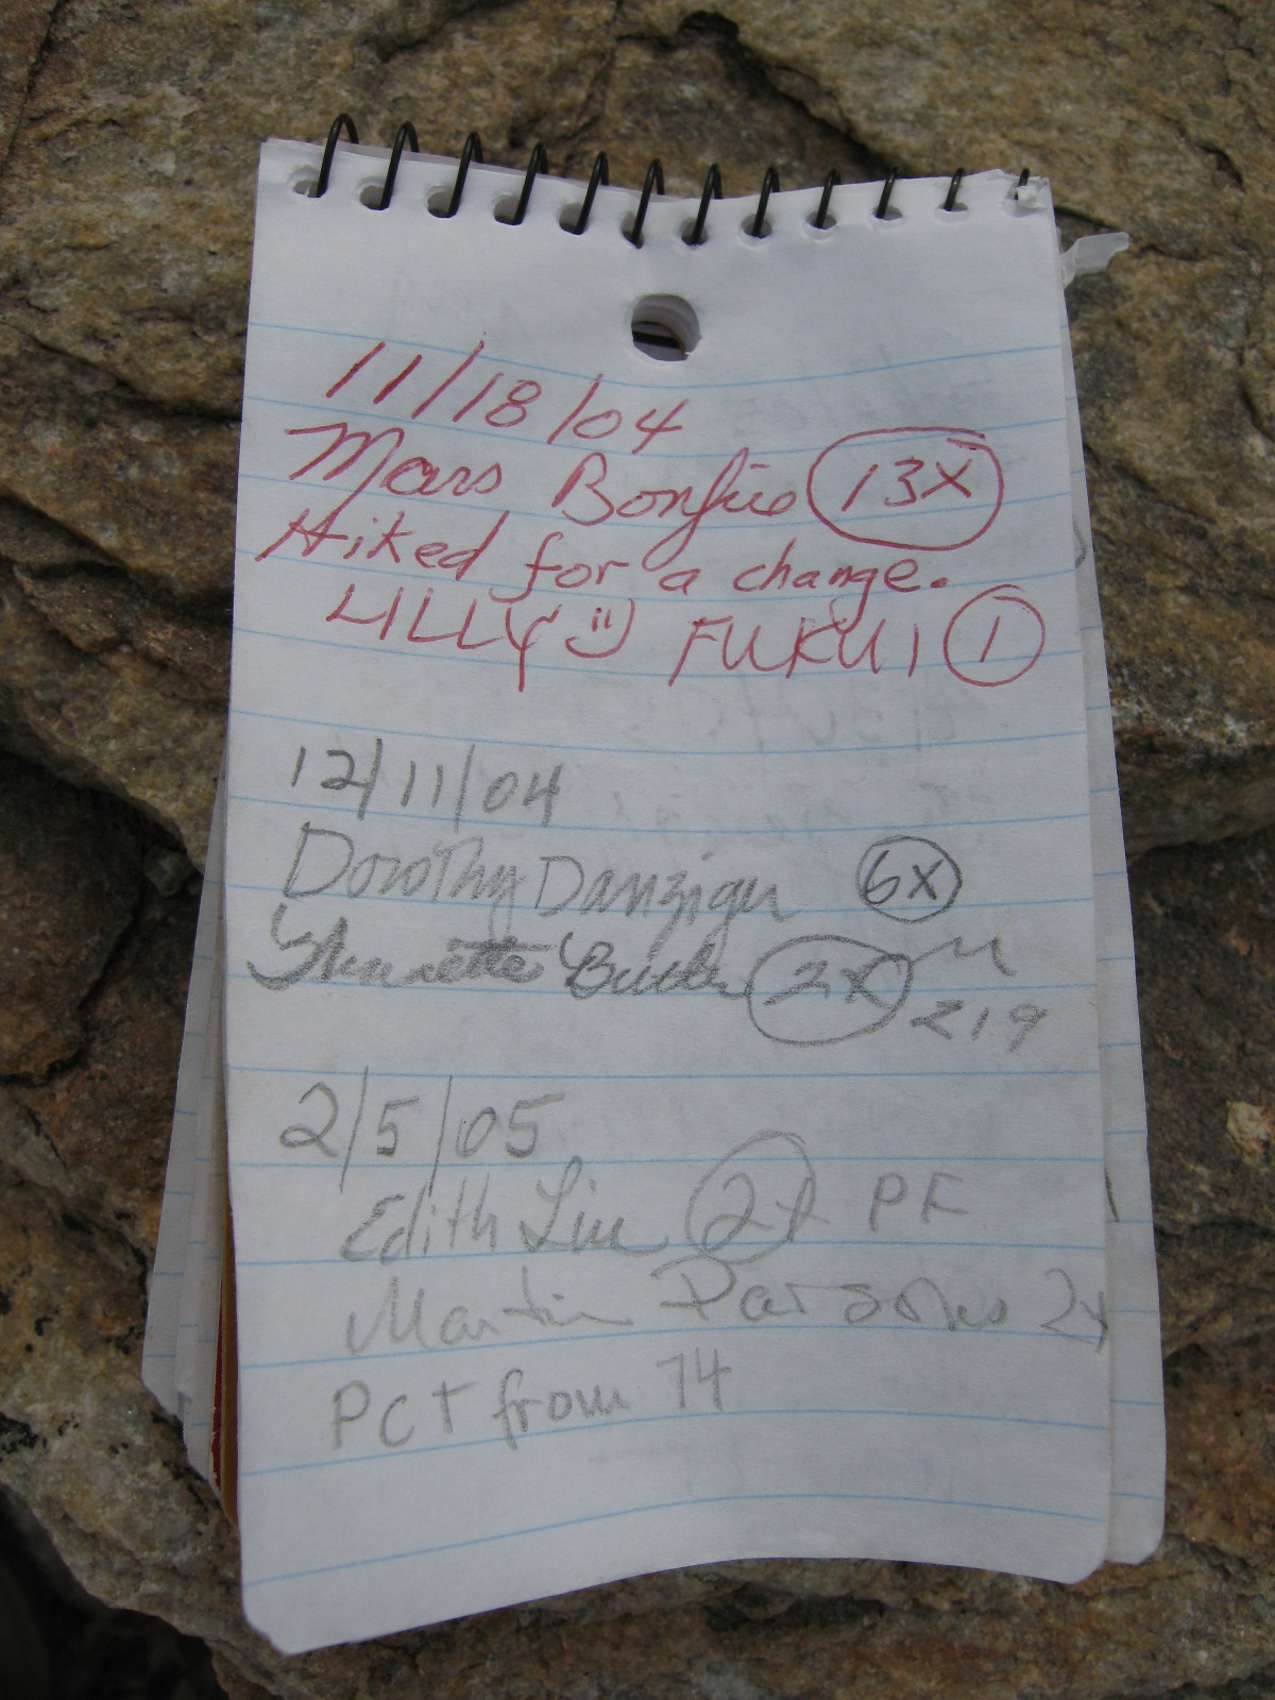 11/18/04
Mars Bonfire 13X
Hiked for a change.
LILLY FUKUI 1
12/11/04
Dorothy Danziger 6X
2X
219
2/5/05
Edith Liu 2X PF
Martin Parsons 2x
PCT from 74